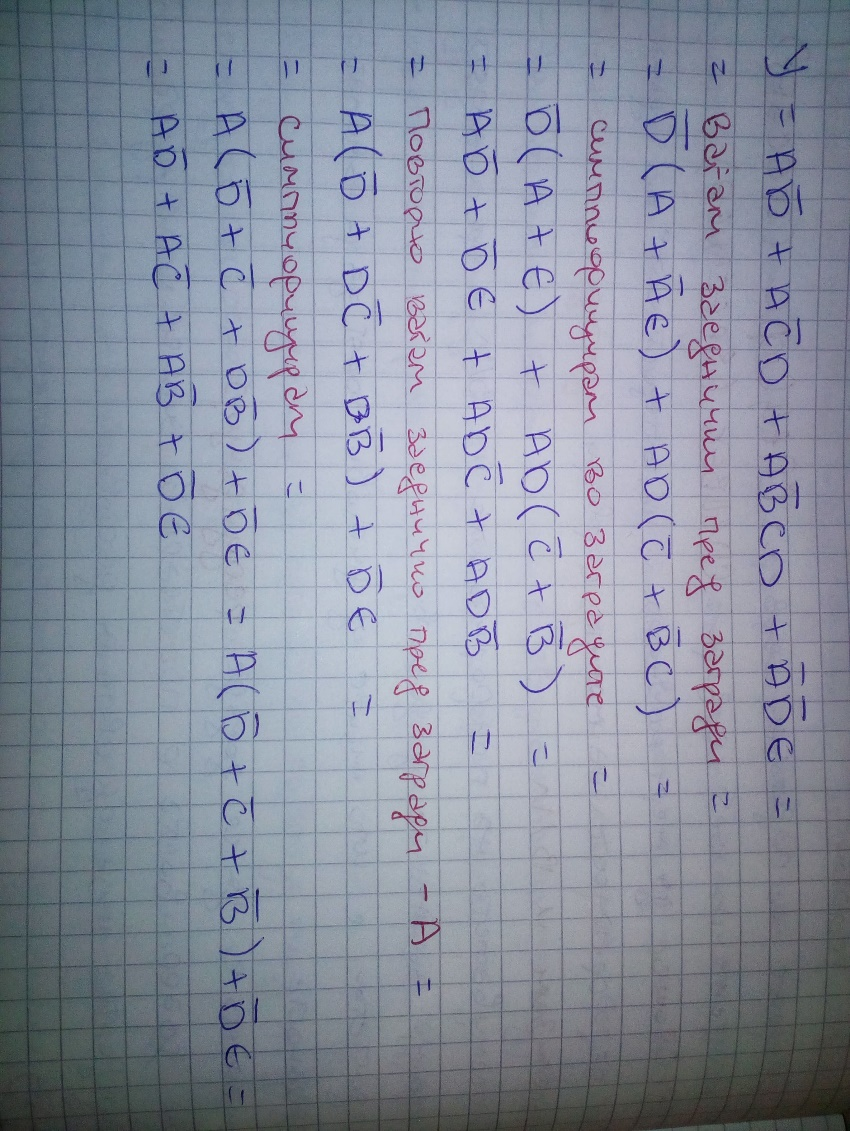 y = AD̅ + AC̅D + AB̅CD + A̅D̅E =
= Ваѓам заеднички пред загради =
= D̅(A + A̅E) + AD(C̅ + B̅C) =
= симплифицирам во заградите =
= D̅(A + E) + AD(C̅ + B̅) =
= AD̅ + D̅E + ADC̅ + ADB̅ =
= Повторно ваѓам заеднично пред загради - A =
= A(D̅ + DC̅ + BB̅) + D̅E =
= симплифицирам =
= A(D̅ + C̅ + DB̅) + D̅E = A(D̅ + C̅ + B̅) + D̅E =
= AD̅ + AC̅ + AB̅ + D̅E